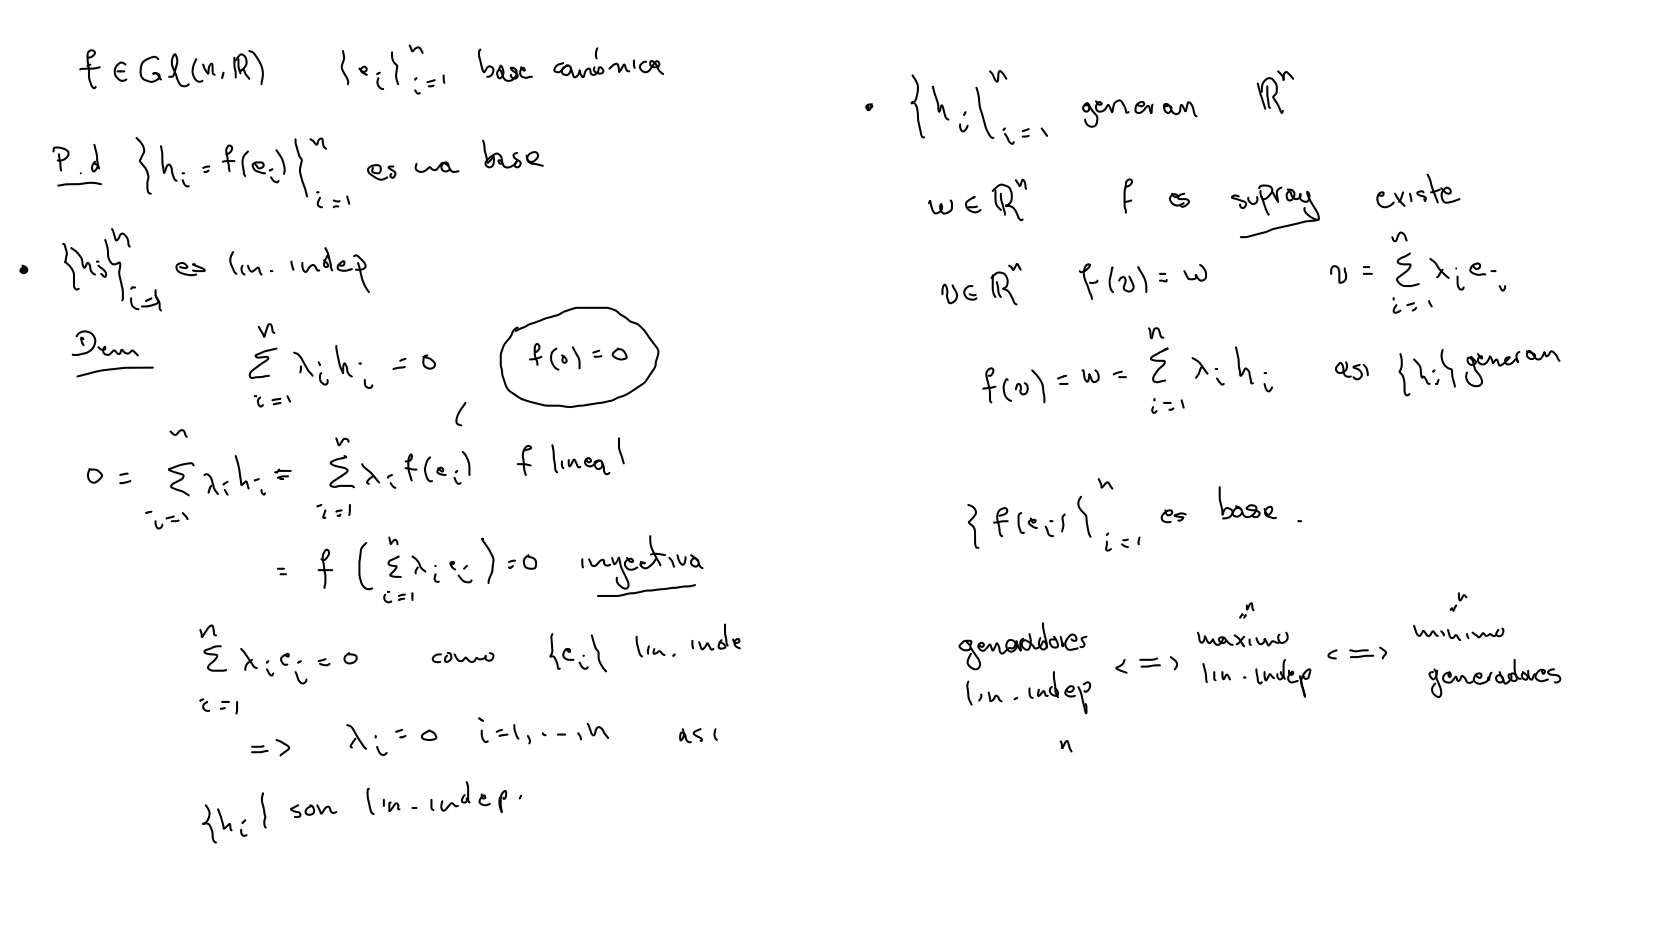 f ∈ Gl(n, ℝ) {e_i}_{i=1}^n base canónica
P.d {h_i = f(e_i)}_{i=1}^n es una base
• {h_i}_{i=1}^n es lin. indep
Dem ∑_{i=1}^n λ_i h_i = 0 f(0) = 0
0 = ∑_{i=1}^n λ_i h_i = ∑_{i=1}^n λ_i f(e_i) f lineal
= f(∑_{i=1}^n λ_i e_i) = 0 inyectiva
∑_{i=1}^n λ_i e_i = 0 como {e_i} lin. inde
=> λ_i = 0 i=1,...,n asi
{h_i} son lin-indep.
• {h_i}_{i=1}^n generan ℝ^n
w ∈ ℝ^n f es supray existe
v ∈ ℝ^n f(v) = w v = ∑_{i=1}^n λ_i e_i
f(v) = w = ∑_{i=1}^n λ_i h_i asi {h_i} generan
{f(e_i)}_{i=1}^n es base.
n n
generadores <=> maximo <=> minimo
lin.indep lin.indep generadores
n